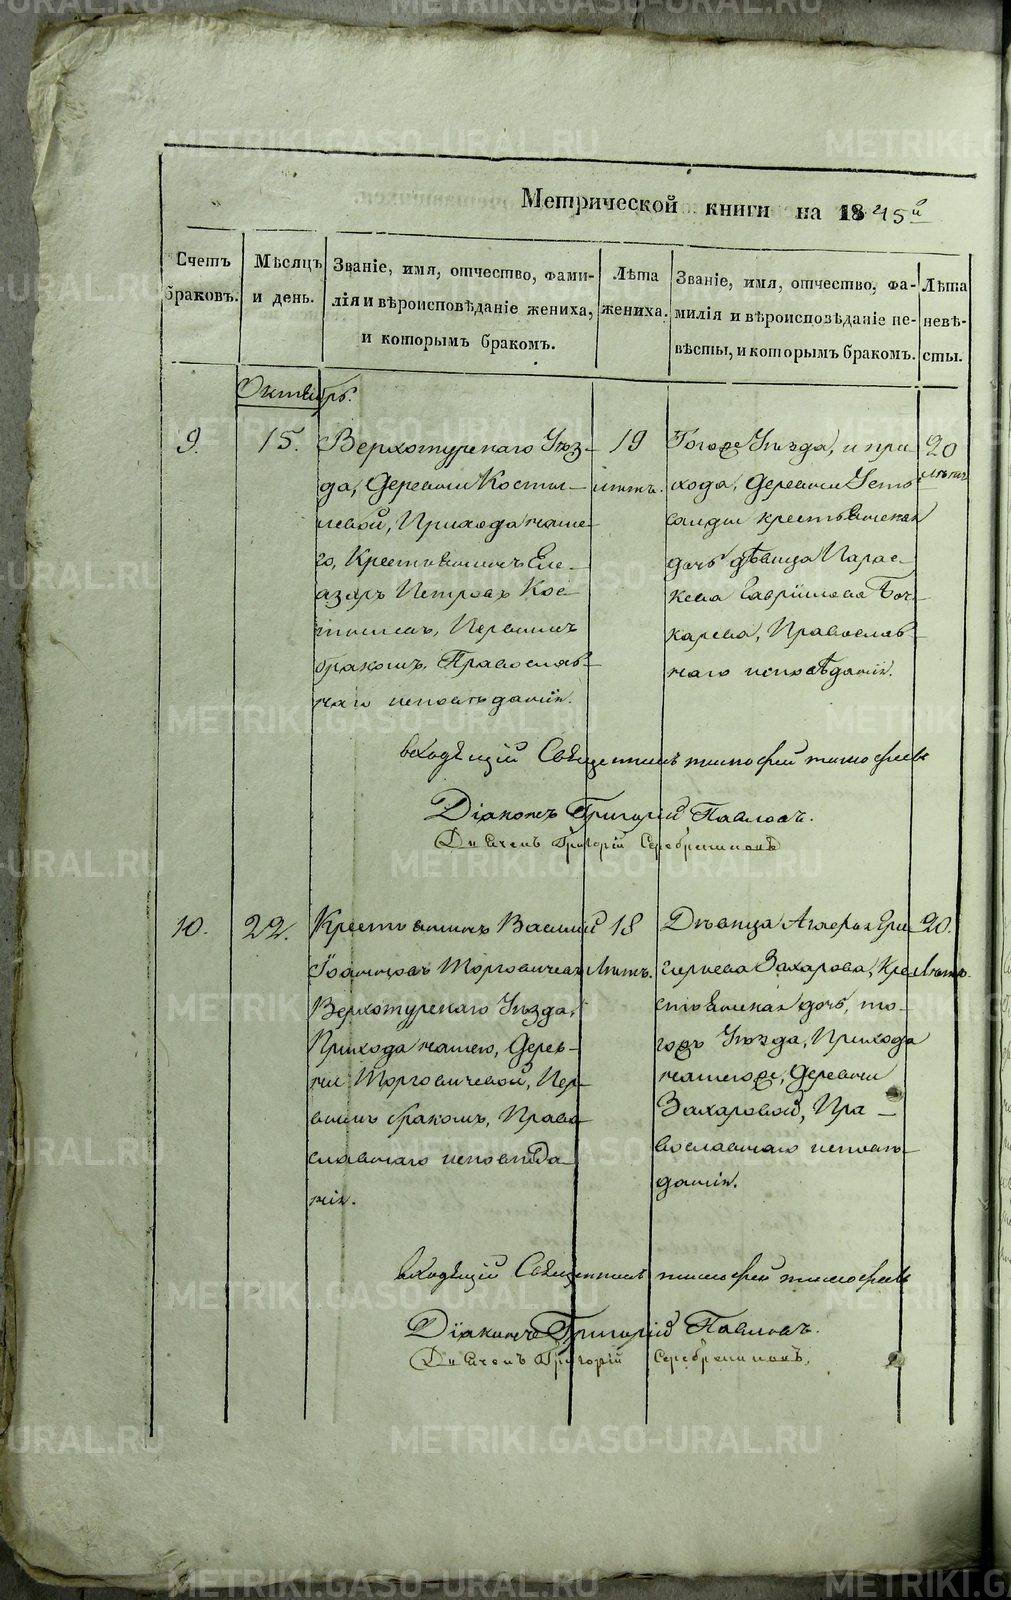 Метрической книги на 1845й
Счетъ браковъ.
Мѣсяцъ и день.
Званіе, имя, отчество, фами-
лія и вѣроисповѣданіе жениха,
и которымъ бракомъ.
Лѣта
жениха.
Званіе, имя, отчество, фа-
милія и вѣроисповѣданіе не-
вѣсты, и которымъ бракомъ.
Лѣта
невѣ-
сты.
Октябрь.
9.
15.
Верхотурскаго Уѣз-
да, Деревни Косты-
левой, Прихода наше-
го, Крестьянинъ Еле-
азаръ Петровъ Кос-
тылевъ, Первымъ
бракомъ, Православ-
наго исповѣданія.
19
лѣтъ.
Тогоже Уѣзда, и при-
хода, Деревни Усть
салды крестьянская
дочь дѣвица Парас-
кева Гавріилова Боч-
карева, Православ-
наго исповѣданія.
20
лѣтъ
входящій Священникъ тимофей тимофеевъ
Діаконъ Григорій Павловъ.
Дьячекъ Григорій Серебрениковъ
10.
22.
Крестьянинъ Василій
Іоанновъ Торговичевъ
Верхотурскаго Уѣзда,
Прихода нашего, Дерев-
ни Торговичевой, Пер-
вымъ бракомъ, Право-
славнаго исповѣда-
нія.
18
Лѣтъ.
Дѣвица Агафья Гри-
горьева Захарова, Кре-
стьянская дочь, то-
гожъ Уѣзда, Прихода
нашегоже, Деревни
Захаровой, Пра-
вославнаго исповѣ-
данія.
20.
Лѣтъ.
входящій Священникъ тимофей тимофеевъ
Діаконъ Григорій Павловъ.
Дьячекъ Григорій Серебрениковъ,
METRIKI.GASO-URAL.RU